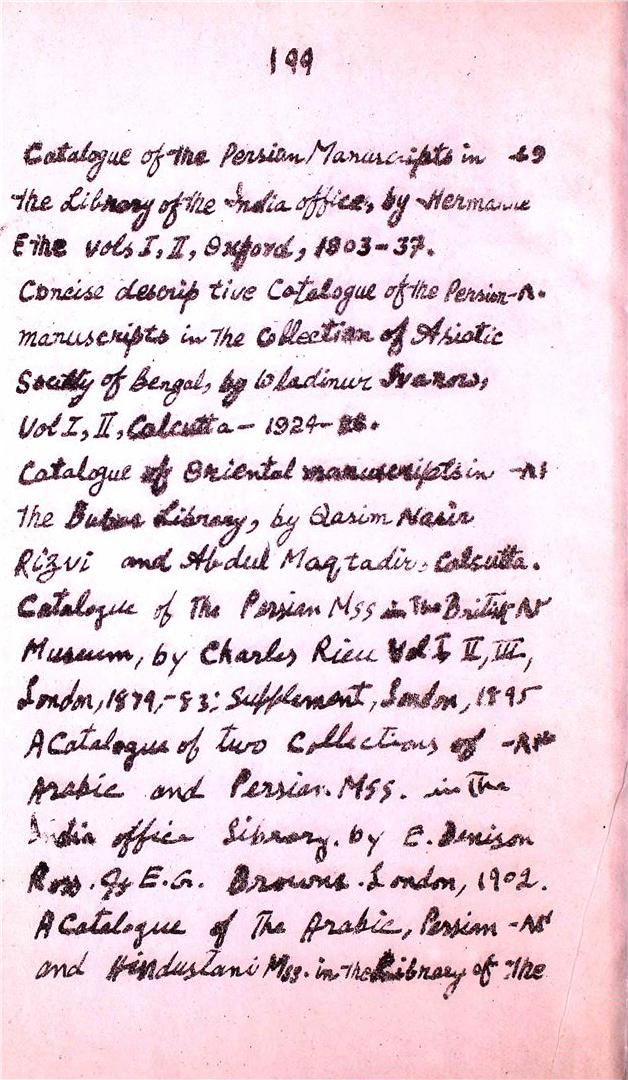 199
Catalogue of the Persian Manuscripts in -۷۹
the Library of the India office, by Hermanne
Ethe vols I, II, Oxford, 1903-37.
Concise descriptive Catalogue of the Persian -۸۰
manuscripts in the Collection of Asiatic
Society of Bengal, by Wladimur Ivanow,
Vol I, II, Calcutta - 1924-
Catalogue of Oriental manuscripts in -۸۱
the Buhar Library, by Qasim Nasir
Rizvi and Abdul Maqtadir, Calcutta.
Catalogue of The Persian Mss in The British -۸۲
Museum, by Charles Rieu Vol I, II, III,
London, 1879,-83; Supplement, London, 1895
A Catalogue of two Collections of -۸۳
Arabic and Persian. Mss. in The
India office Library. by E. Denison
Ross. & E.G. Browne. London, 1902.
A Catalogue of The Arabic, Persian -۸۴
and Hindustani Mss. in The Library of The